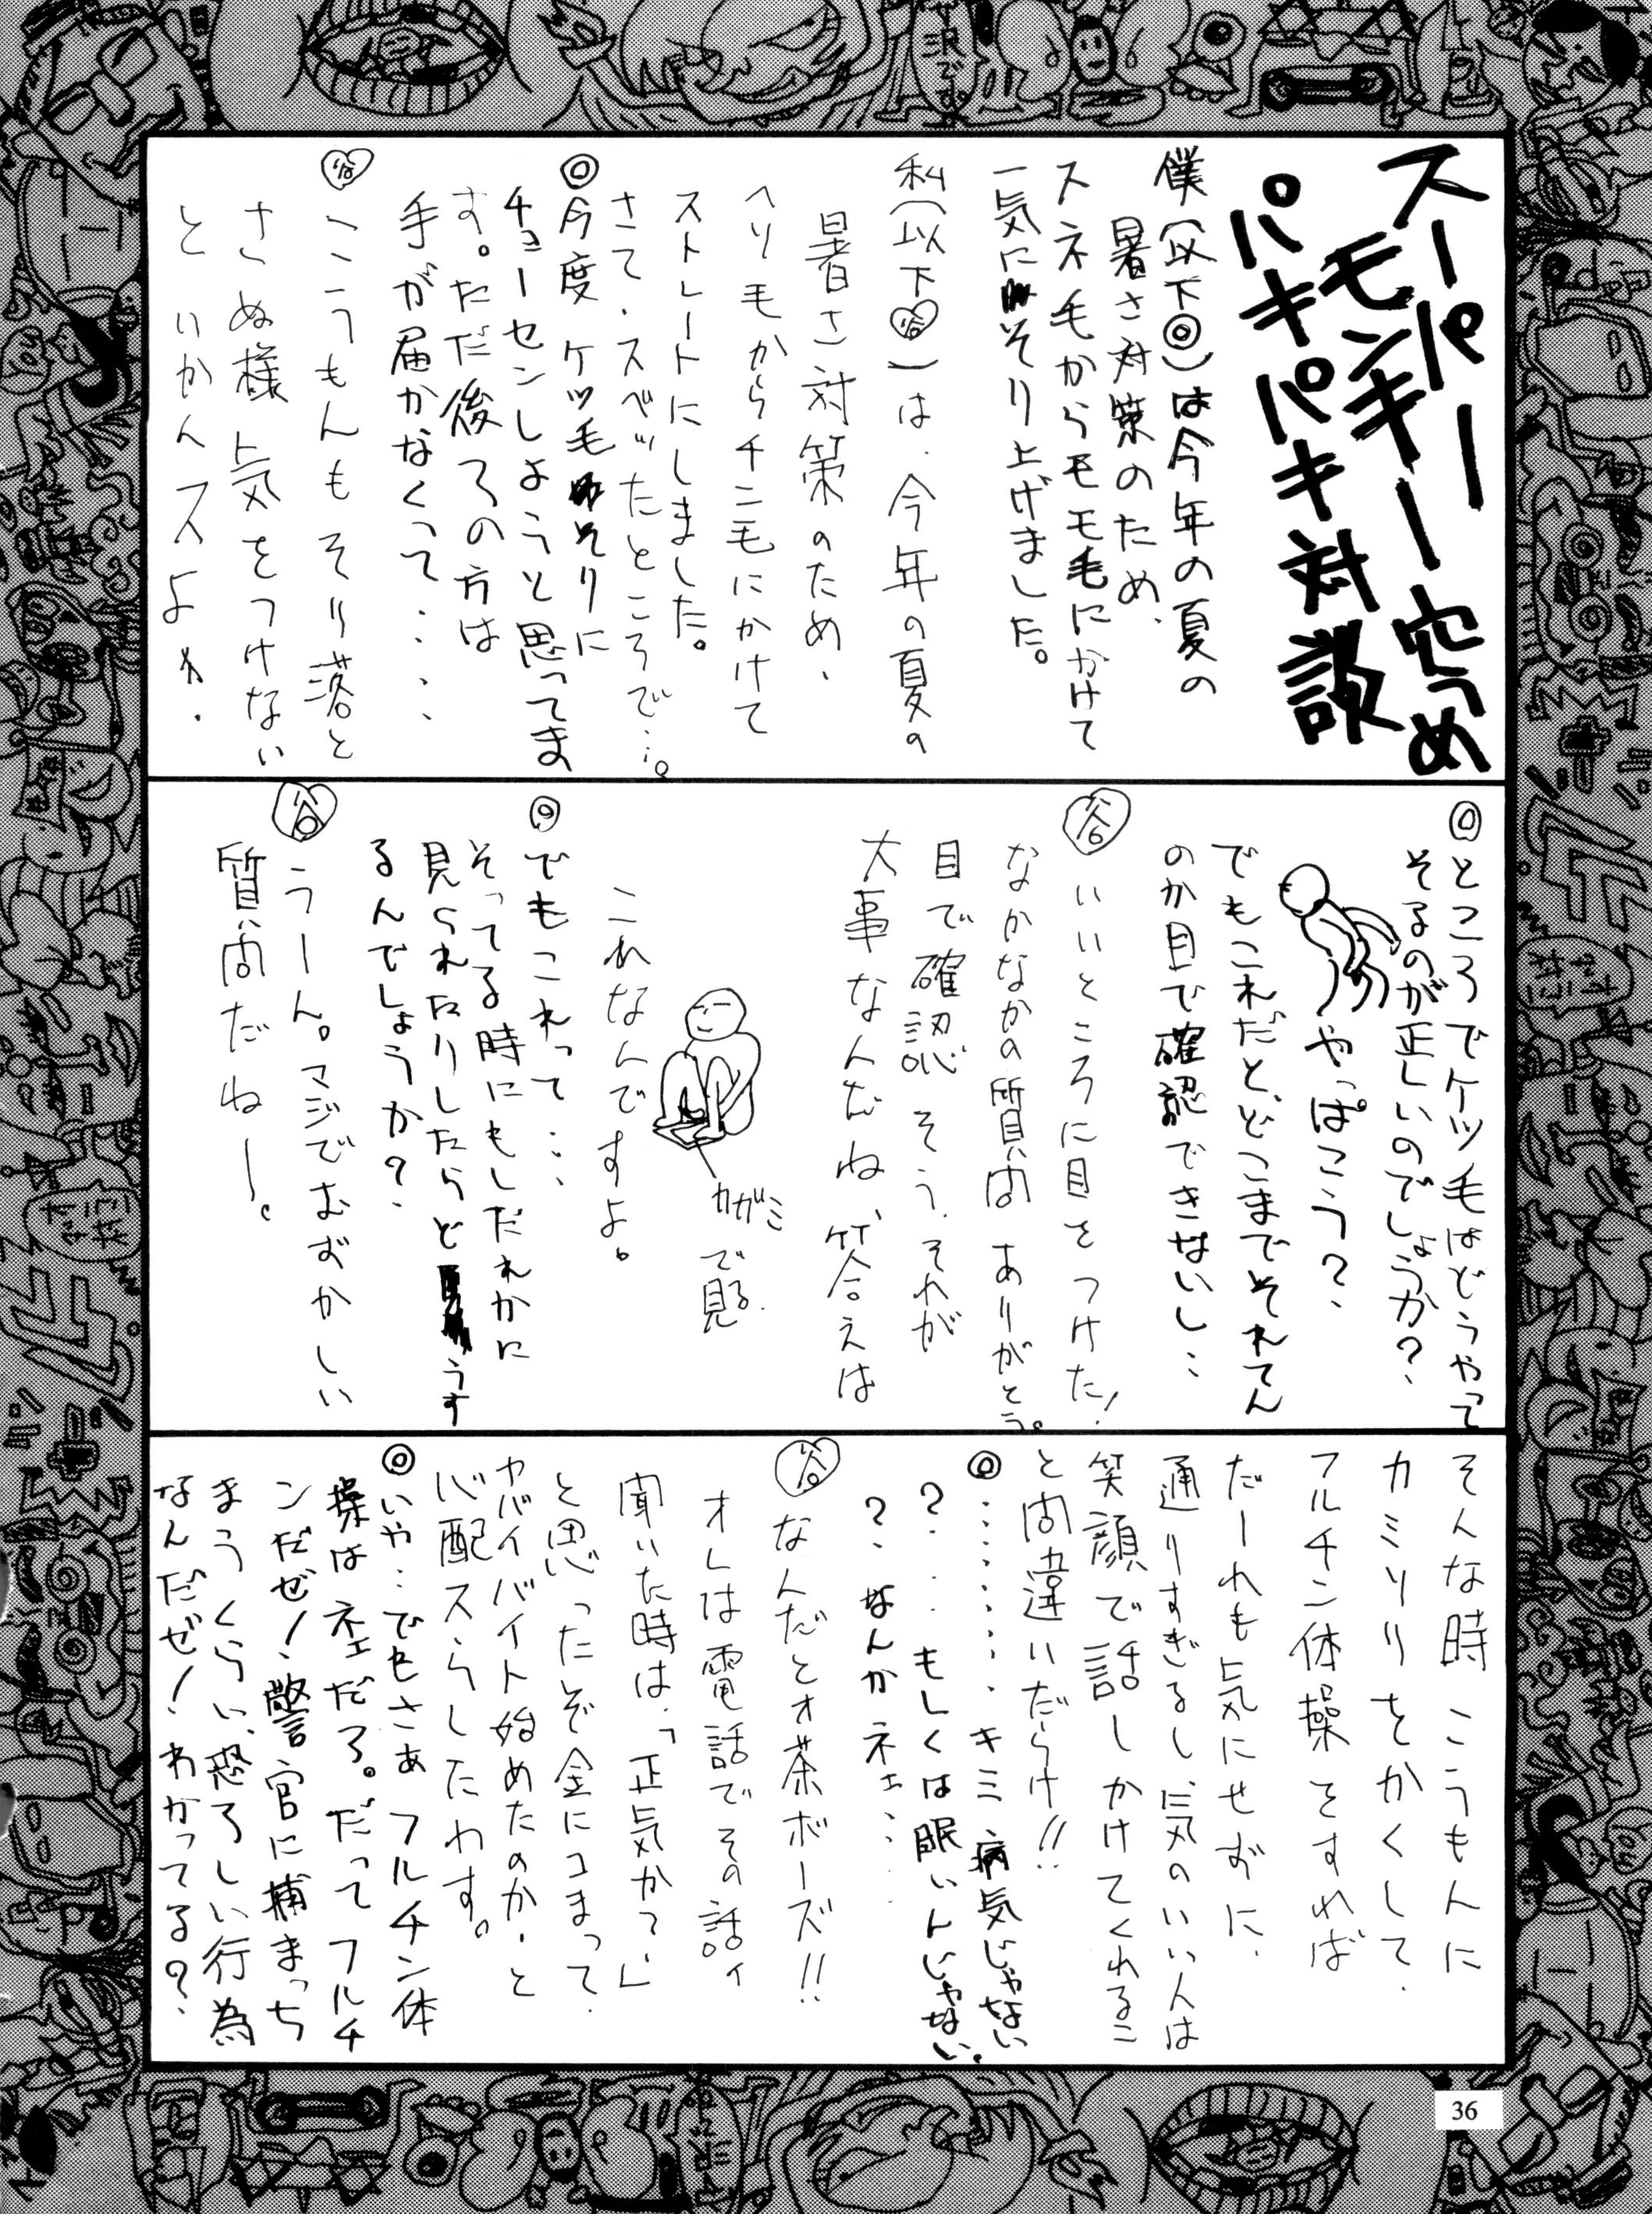 スーパー
モンキー 穴うめ
パキパキ対談
僕(以下◎)は今年の夏の
暑さ対策のため、
スネ毛からモモ毛にかけて
一気にそり上げました。
私(以下谷)は、今年の夏の
暑さ対策のため、
ヘリ毛からチン毛にかけて
ストレートにしました。
さて、スベッたところで…。
◎今度ケツ毛そりに
チョーセンしようと思ってま
す。ただ後ろの方は
手が届かなくって・・・・
谷 こうもんもそり落と
さぬ様気をつけない
といかんスよ
◎ところでケツ毛はどうやって
そるのが正しいのでしょうか?
やっぱこう?
でもこれだと、どこまでそれてん
のか目で確認できないし…
谷 いいところに目をつけた!
なかなかの質問ありがとう。
目で確認 そう、それが
大事なんだね、答えは
カガミ
で見る
これなんですよ。
◎でもこれって…
そってる時にもしだれかに
見られたりしたらどうす
るんでしょうか?
谷 うーん。マジでむずかしい
質問だねー。
そんな時こうもんに
カミソリをかくして、
フルチン体操をすれば
だーれも気にせずに、
通りすぎるし、気のいい人は
笑顔で話しかけてくれるこ
と間違いだらけ!!
◎・・・・・・・キミ、病気じゃない
?‥もしくは眠いんじゃない
?、なんかネェ…
谷 なんだとオ茶ボーズ!!
オレは電話でその話ィ
聞いた時は、「正気か?」
と思ったぞ金にコまって、
ヤバイバイト始めたのか、と
心配スらしたわす。
◎いや…でもさぁ フルチン体
操はネェだろ。だってフルチ
ンだぜ!警官に捕まっち
まうくらい、恐ろしい行為
なんだぜ!わかってる?
36